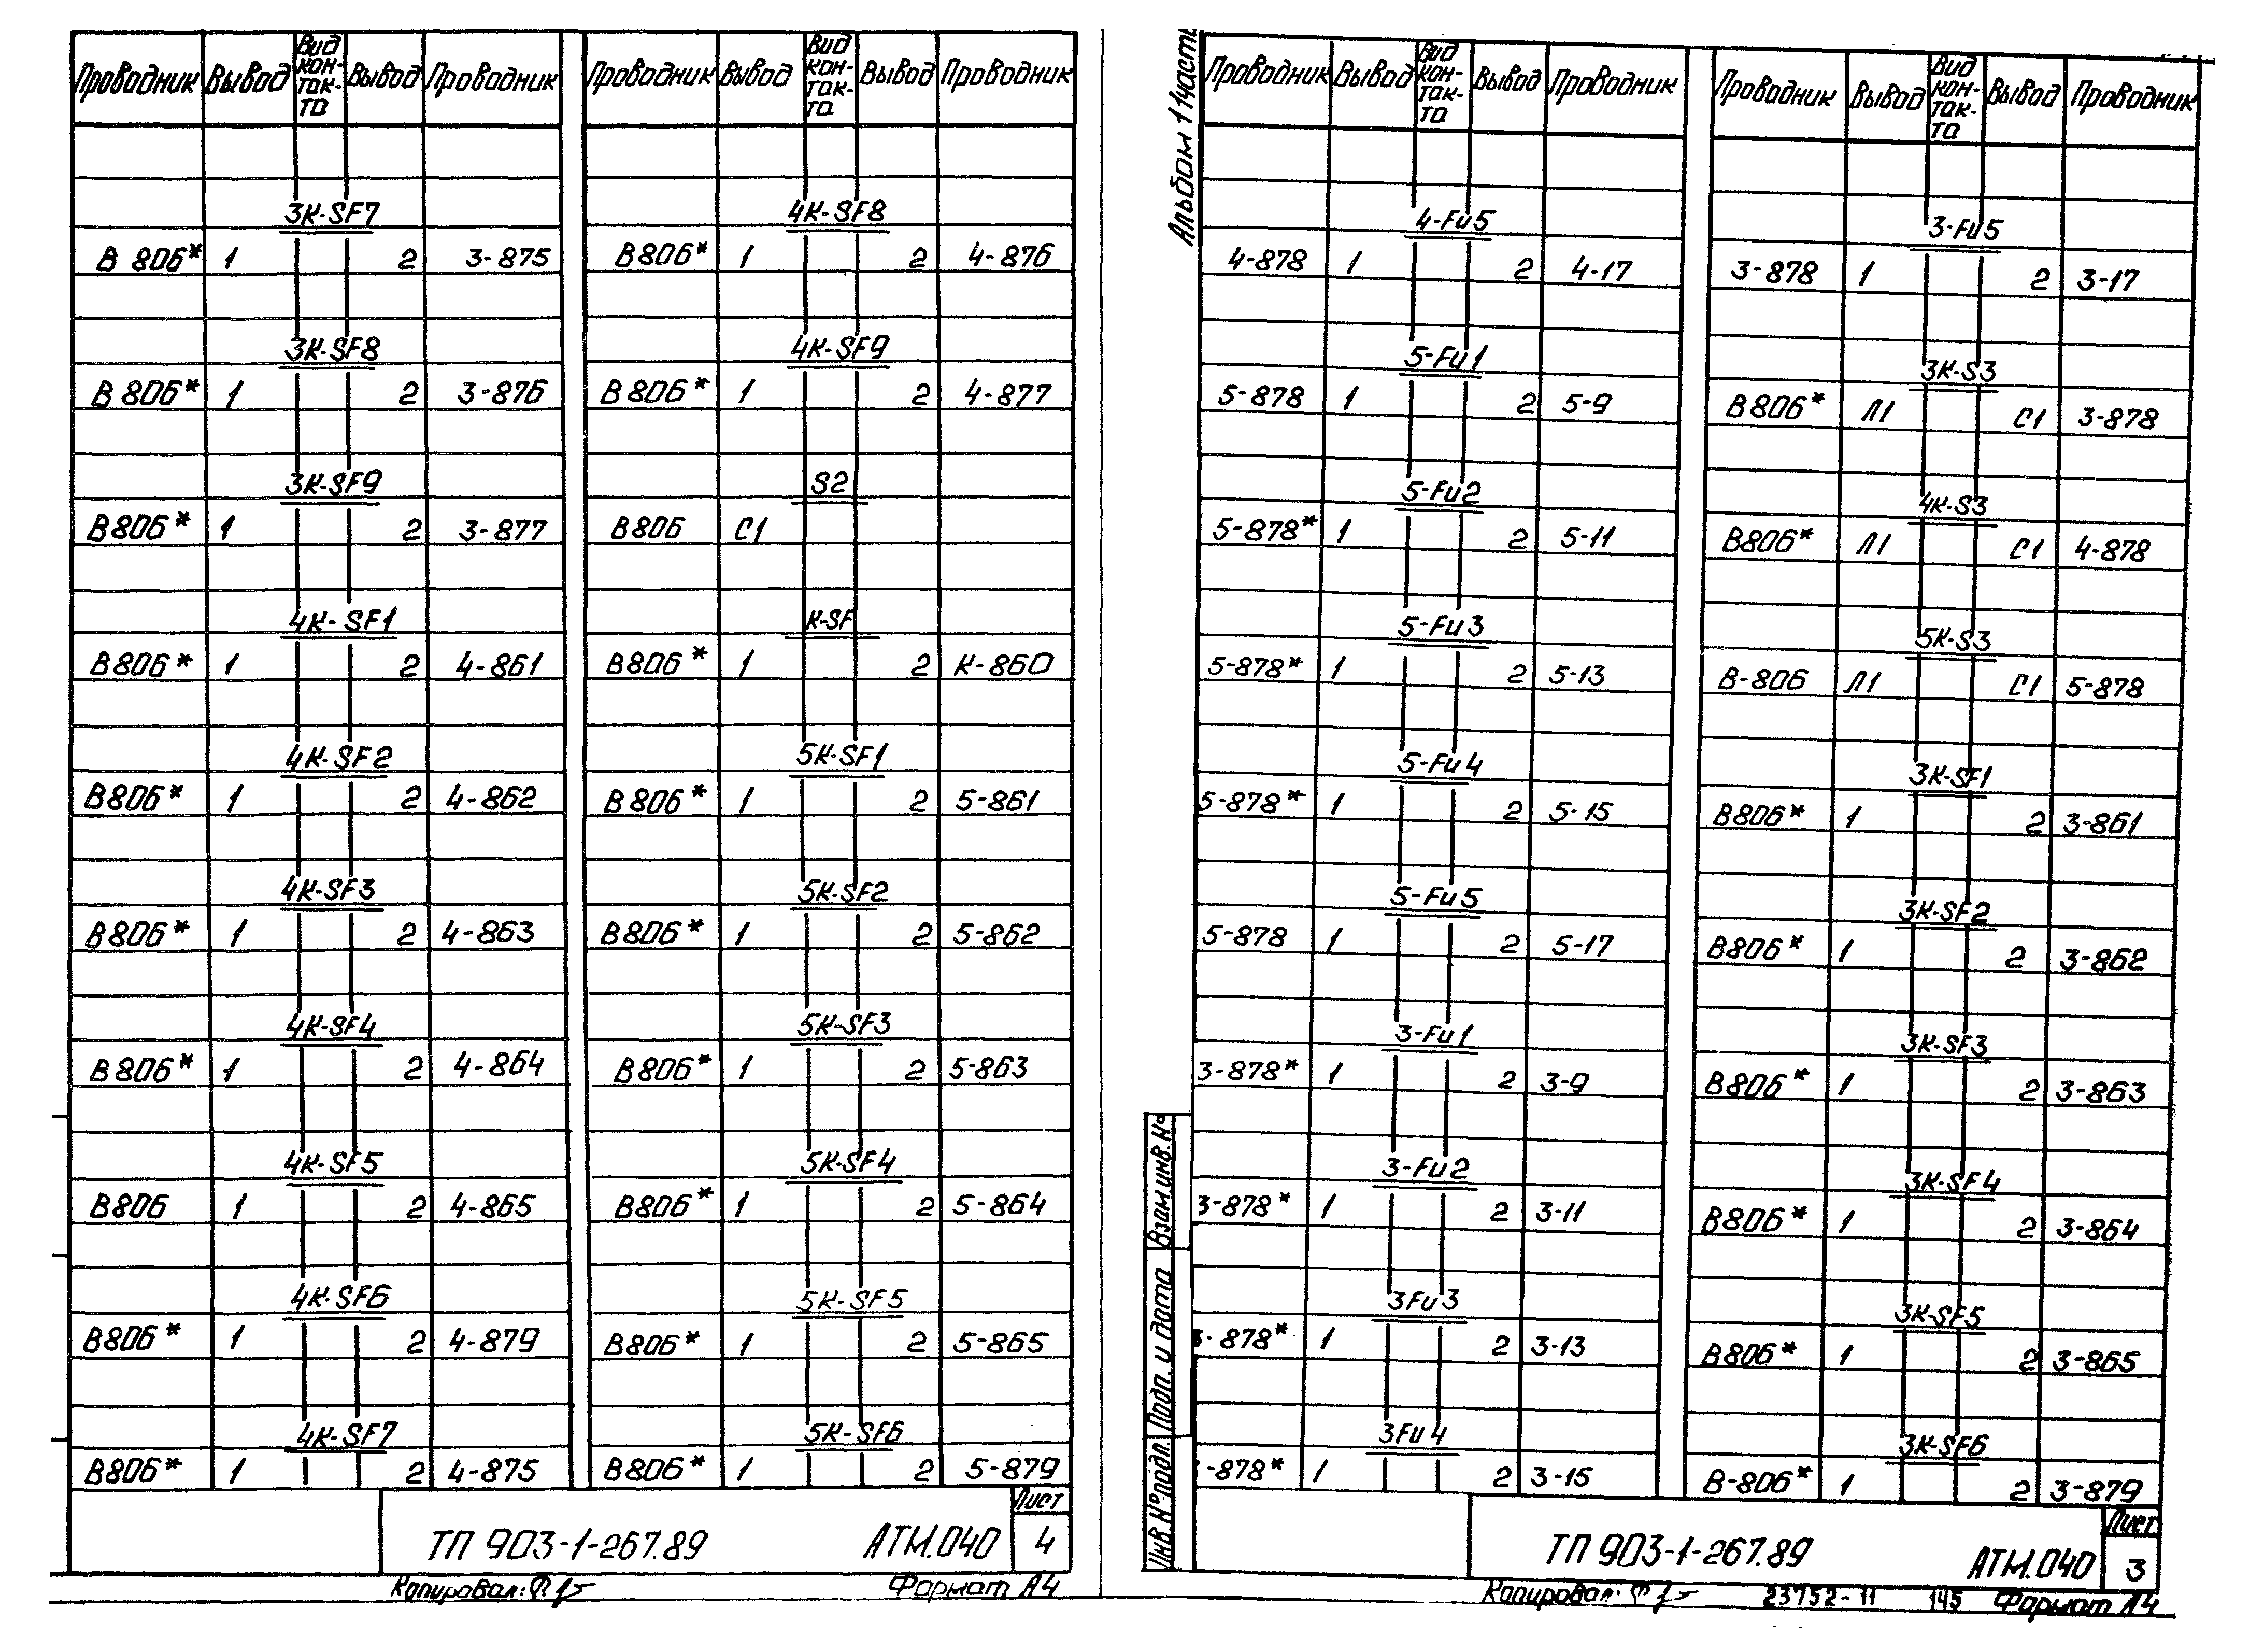 Проводник Вывод Вид кон-так-та Вывод Проводник Проводник Вывод Вид кон-так-та Вывод Проводник
3К-SF7 4К-SF8
В 806* 1 2 3-875 В806* 1 2 4-876
3К-SF8 4К-SF9
В 806* 1 2 3-876 В806* 1 2 4-877
3К-SF9 S2
В806* 1 2 3-877 В806 С1
4К-SF1 К-SF
В806* 1 2 4-861 В806* 1 2 К-860
4К-SF2 5К-SF1
В806* 1 2 4-862 В806* 1 2 5-861
4К-SF3 5К-SF2
В806* 1 2 4-863 В806* 1 2 5-862
4К-SF4 5К-SF3
В806* 1 2 4-864 В806* 1 2 5-863
4К-SF5 5К-SF4
В806 1 2 4-865 В806* 1 2 5-864
4К-SF6 5К-SF5
В806* 1 2 4-879 В806* 1 2 5-865
4К-SF7 5К-SF6
В806* 1 2 4-875 В806* 1 2 5-879
ТП 903-1-267.89 АТМ.040 Лист 4
Копировал: Формат А4
Альбом 1 1часть
Проводник Вывод Вид кон-так-та Вывод Проводник Проводник Вывод Вид кон-так-та Вывод Проводник
4-Fu5 3-Fu5
4-878 1 2 4-17 3-878 1 2 3-17
5-Fu1 3К-S3
5-878 1 2 5-9 В806* Л1 С1 3-878
5-Fu2 4К-S3
5-878* 1 2 5-11 В806* Л1 С1 4-878
5-Fu3 5К-S3
5-878* 1 2 5-13 В-806 Л1 С1 5-878
5-Fu4 3К-SF1
5-878* 1 2 5-15 В806* 1 2 3-861
5-Fu5 3К-SF2
5-878 1 2 5-17 В806* 1 2 3-862
3-Fu1 3К-SF3
3-878* 1 2 3-9 В806* 1 2 3-863
3-Fu2 3К-SF4
3-878* 1 2 3-11 В806* 1 2 3-864
3Fu3 3К-SF5
3-878* 1 2 3-13 В806* 1 2 3-865
3Fu4 3К-SF6
-878* 1 2 3-15 В-806* 1 2 3-879
Инв.№подл. Подп. и дата Взам инв.№
ТП 903-1-267.89 АТМ.040 Лист 3
Копировал: 23752-11 145 Формат А4